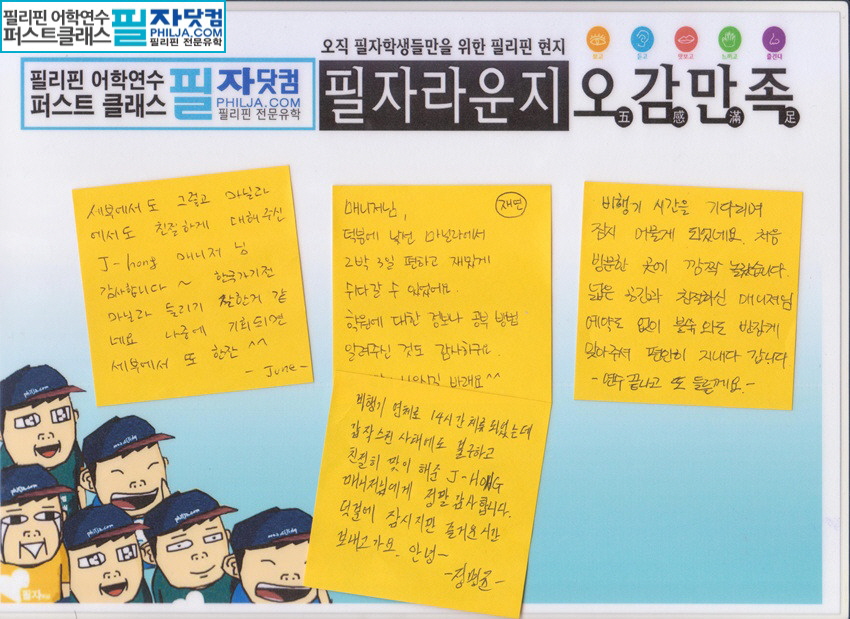 필리핀 어학연수
퍼스트클래스
필자닷컴
PHILJA.COM
필리핀 전문유학
오직 필자학생들만을 위한 필리핀 현지
보고
듣고
맛보고
느끼고
즐긴다
필리핀 어학연수
퍼스트 클래스
필자닷컴
PHILJA.COM
필리핀 전문유학
필자라운지
오감만족
五 感 滿 足
세부에서도 그렇고 마닐라
에서도 친절하게 대해주신
J-hong 매니저 님
감사합니다~ 한국가기전
마닐라 들리기 잘한거 같
네요 나중에 기회되면
세부에서 또 한잔 ^^
- June -
매니저님, 재연
덕분에 낯선 마닐라에서
2박 3일 편하고 재밌게
쉬다갈 수 있었어요.
학원에 대한 정보나 공부 방법
알려주신 것도 감사하구요.
바래요^^
비행기 시간을 기다리며
잠시 머물게 되었네요. 처음
방문한 곳에 깜짝 놀랐습니다.
넓은 공간과 친절하신 매니저님
예약도 없이 불쑥 와도 반갑게
맞아주셔 편안히 지내다 갑니다
- 연수 끝나고 또 들를께요. -
비행기 연체로 14시간 체류 되었는데
갑작스런 사태에도 불구하고
친절히 맞이 해준 J-HONG
매니저님에게 정말 감사합니다.
덧걸에 잠시지만 즐거운 시간
보내고 가요. 안녕~
philja.com
philja.com
philja.com
필자